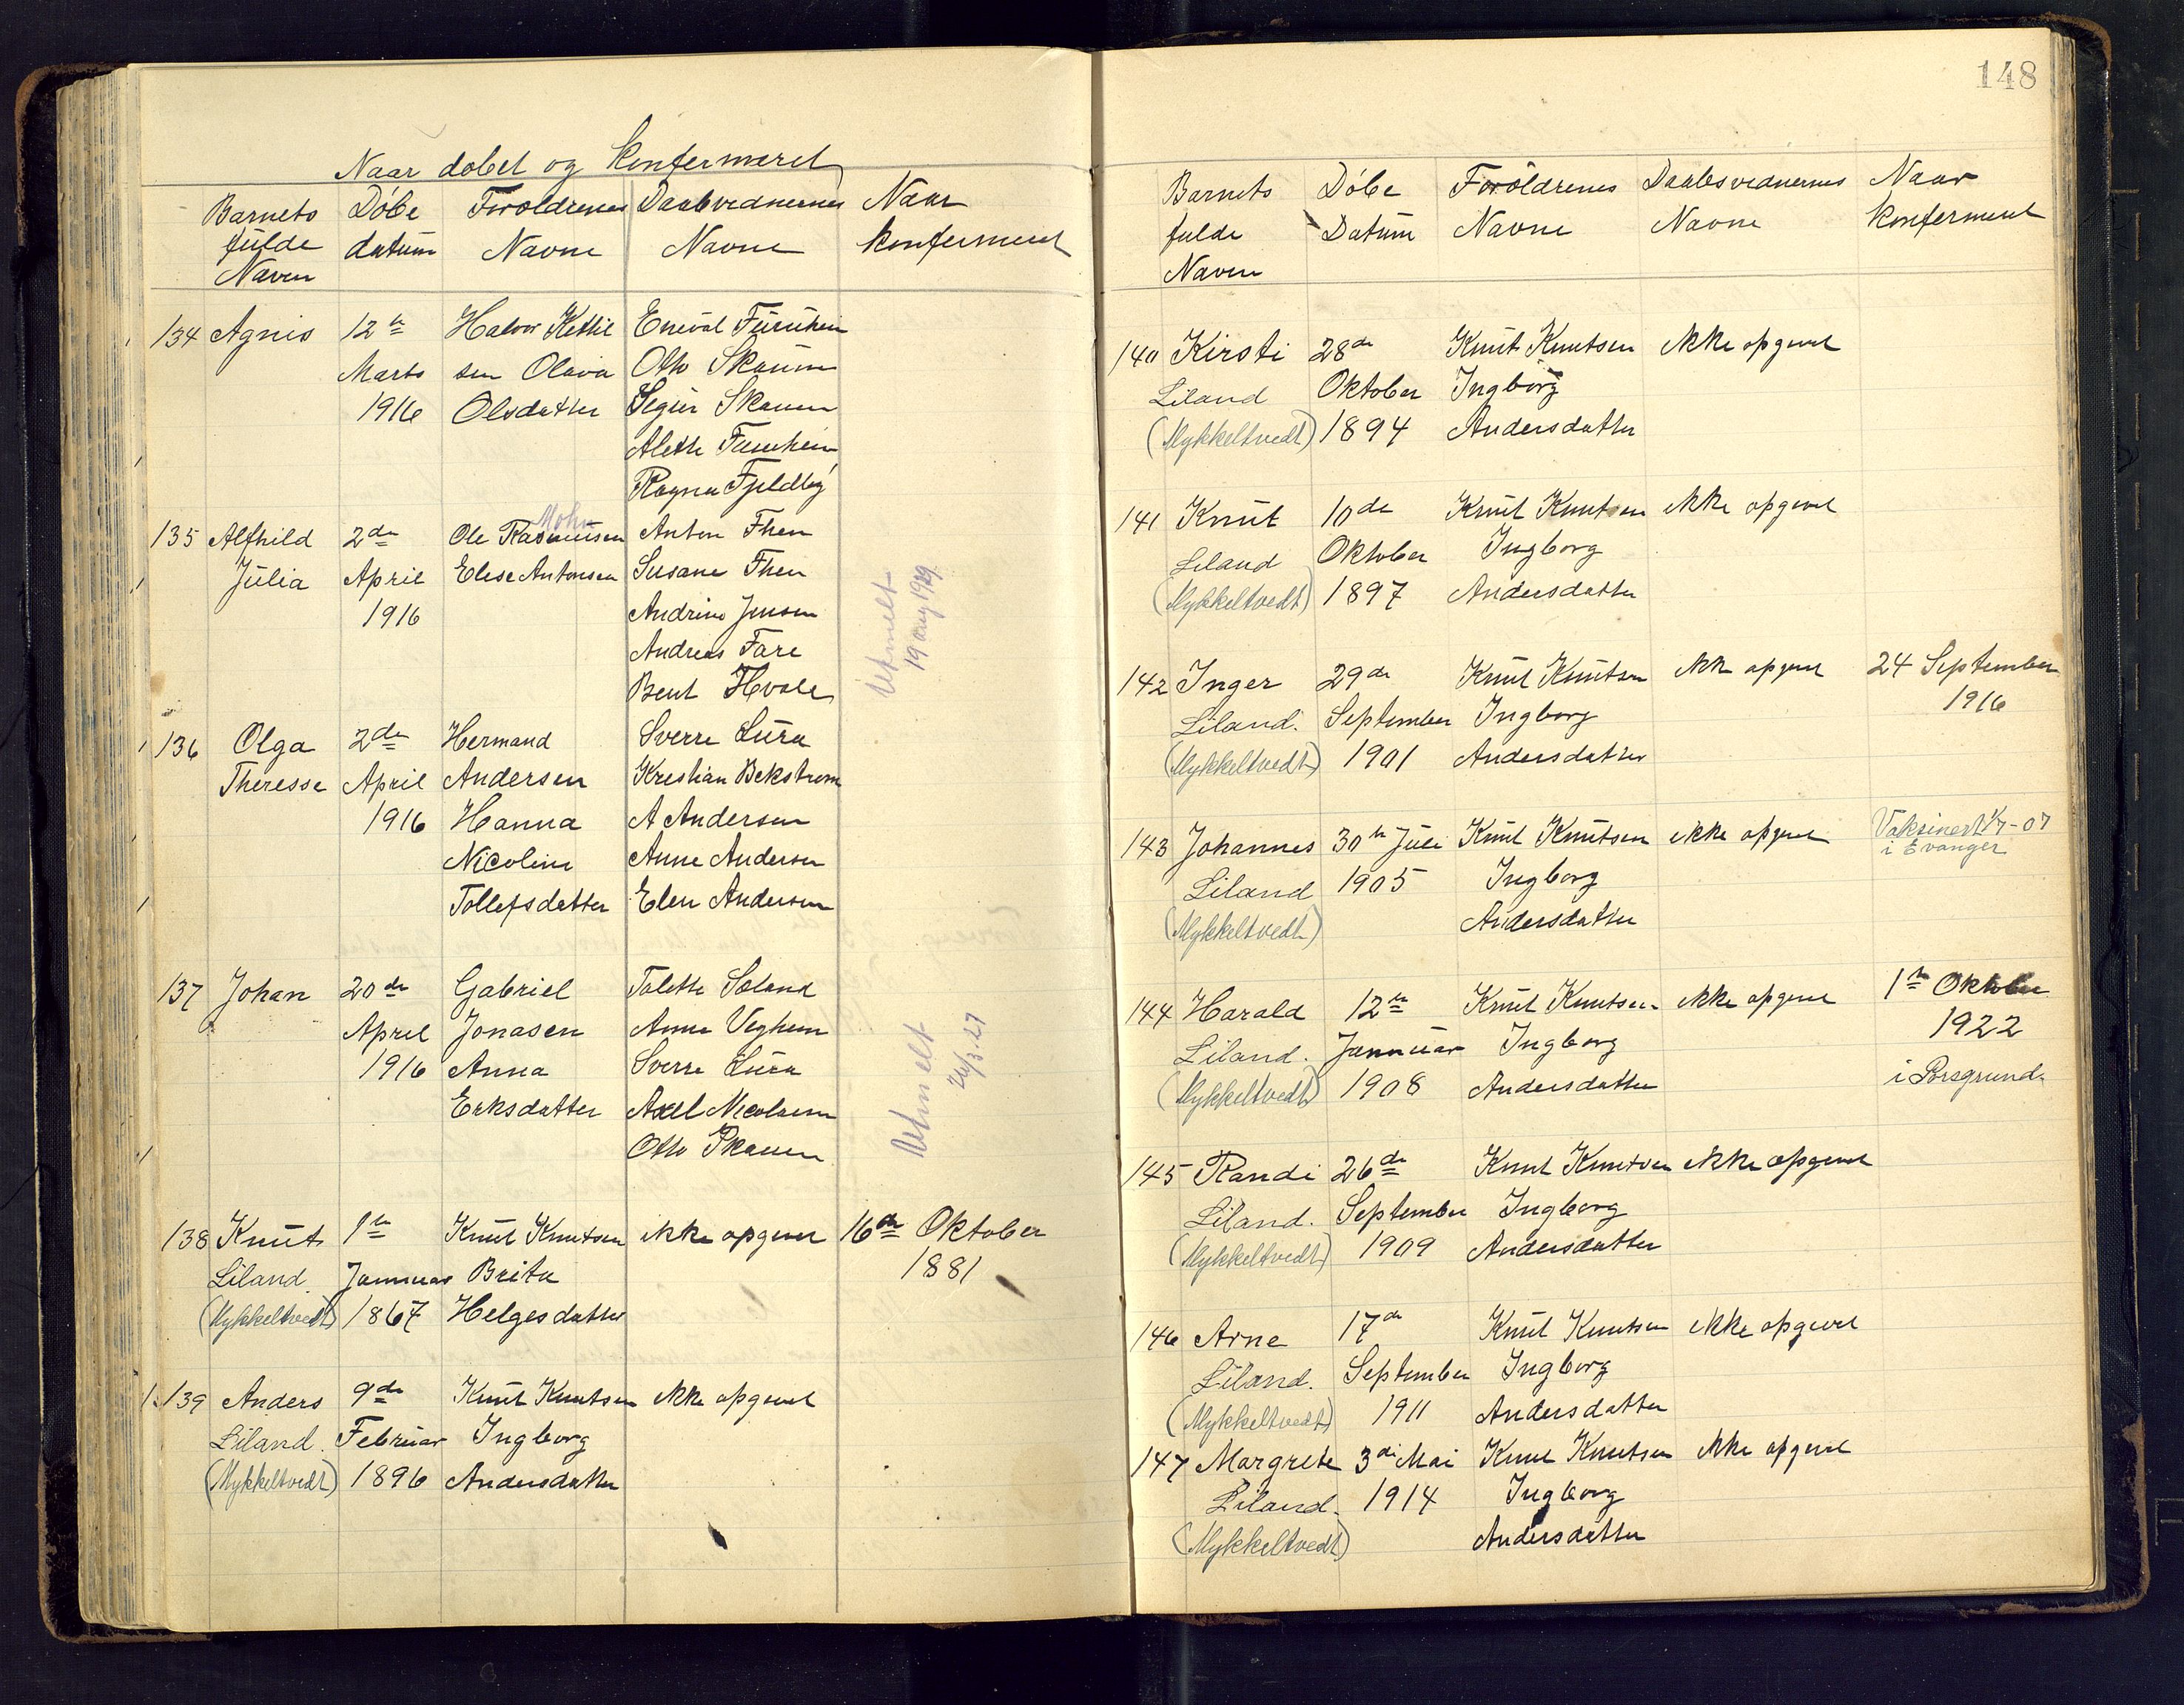 148
Naar døbet og Konfermeret
Barnets fulde Navn
Døbe datum
Foröldrenes Navne
Daabvednernes Navne
Naar konfermeret
134 Agnis
12te Marts 1916
Halvor Kettil
sen Olava
Olsdatter
Eneval Furuhein
Otto Skaum
Sigur Skauen
Alette Furuhein
Ragna Fjeldby
135 Alfhild
Julia
2den April 1916
Mohn
Ole Rasmusen
Elese Antonsen
Anton Fhen
Susane Fhen
Andrine Jensen
Andreas Fare
Bent Hvale
Utmelt
19 aug 1929
136 Olga
Theresse
2den April 1916
Hermand
Andersen
Hanna
Nicoline
Tollefsdatter
Sverre Lura
Krestian Bekstrøm
A Andersen
Anne Andersen
Elen Andersen
137 Johan
20de April 1916
Gabriel
Jonasen
Anna
Eriksdatter
Talette Søland
Anna Veghem
Sverre Lura
Axel Nicolasen
Otto Skauen
Utmelt
24/3.27
138 Knut
Liland
(Mykkeltvedt)
1te Jannuar 1867
Knut Knutsen
Brita
Helgesdatter
ikke opgivet
16de Oktober
1881
139 Anders
Liland.
(Mykkeltvedt)
9de Februar 1896
Knut Knutsen
Ingborg
Andersdatter
ikke opgivet
Barnets fulde Navn
Døbe Datum
Foröldrenes Navne
Daabsvednernes Navne
Naar konfermeret
140 Kirsti
Liland
(Mykkeltvedt)
28de Oktober 1894
Knut Knutsen
Ingborg
Andersdatter
ikke opgivet
141 Knut
Liland
(Mykkeltvedt)
10de Oktober 1897
Knut Knutsen
Ingborg
Andersdatter
ikke opgivet
142 Inger
Liland.
(Mykkeltvedt)
29de September 1901
Knut Knutsen
Ingborg
Andersdatter
ikke opgivet
24 September
1916
143 Johannes
Liland
(Mykkeltvedt)
30te Juli 1905
Knut Knutsen
Ingborg
Andersdatter
ikke opgivet
Vaksinert 1/7-07
i Evanger
144 Harald
Liland.
(Mykkeltvedt)
12te Jannuar 1908
Knut Knutsen
Ingborg
Andersdatter
ikke opgivet
1te Oktober
1922
i Porsgrund
145 Randi
Liland.
(Mykkeltvedt)
26de September 1909
Knut Knutsen
Ingborg
Andersdatter
ikke opgivet
146 Arne
Liland.
(Mykkeltvedt)
17de September 1911
Knut Knutsen
Ingborg
Andersdatter
ikke opgivet
147 Margrete
Liland.
(Mykkeltvedt)
3de Mai 1914
Knut Knutsen
Ingborg
Andersdatter
ikke opgivet